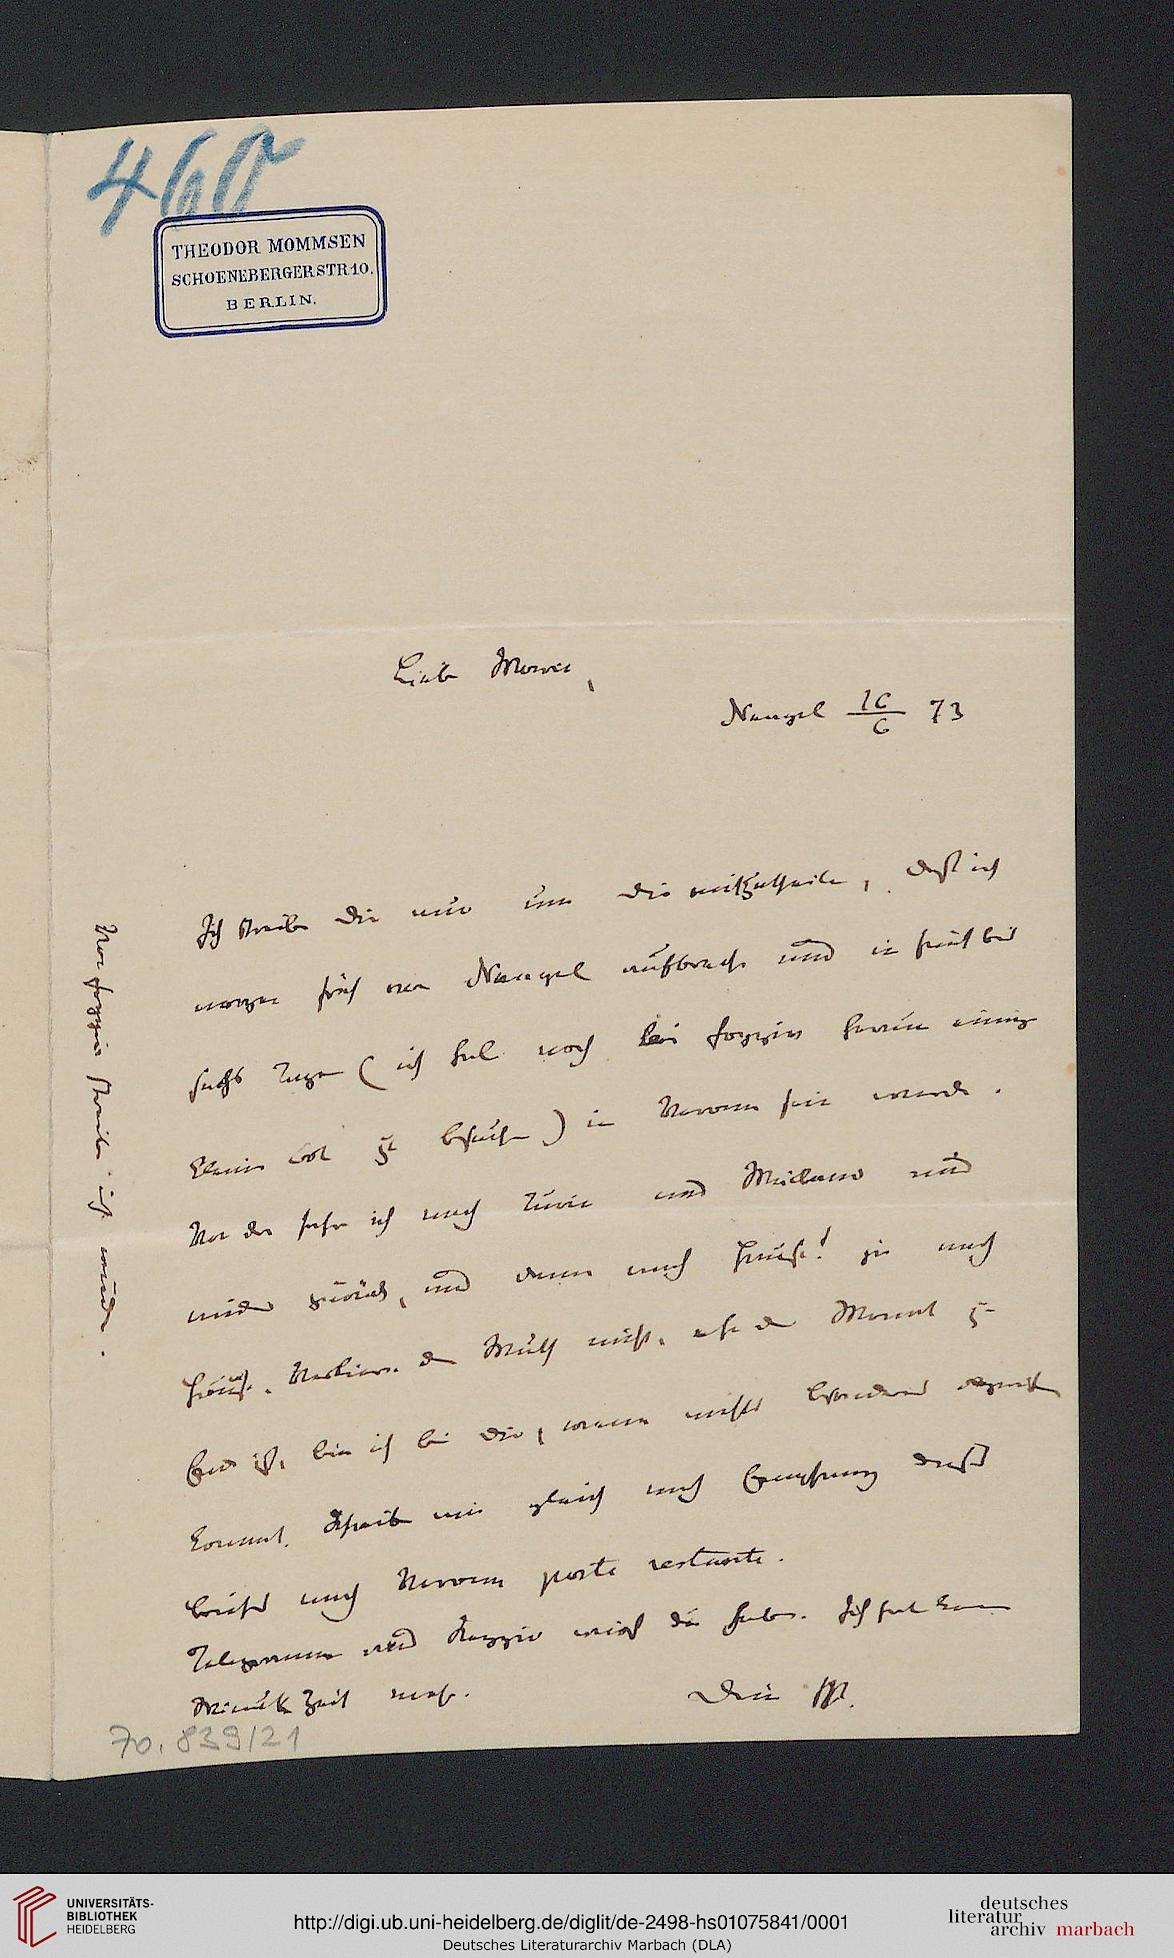 460
THEODOR MOMMSEN
SCHOENEBERGERSTR.10.
BERLIN.
Liebe Marie,
Neapel 16/6 73
Ich schreibe dir nur um dir mitzutheilen, daß ich
morgen früh von Neapel aufbreche und in fünf bis
sechs Tagen (ich hab noch bei Foggia herum einige
kleine Orte zu besuchen) in Verona sein werde.
Von da gehe ich nach Turin und Milano und
wieder zurück, und dann nach Hause! ja nach
Hause. Verliere den Muth nicht, ehe der Monat zu
Ende ist, bin ich bei dir, wenn nichts besonderes
kommt. Schreib mir gleich nach Empfang dieses
Briefes nach Verona poste restante.
Telegramm nach Foggia wirst du haben. Ich hab keine
Minute Zeit mehr.
Dein M.
Von Foggia schreibe ich wieder.
70.839/21
UNIVERSITÄTS-
BIBLIOTHEK
HEIDELBERG
http://digi.ub.uni-heidelberg.de/diglit/de-2498-hs01075841/0001
Deutsches Literaturarchiv Marbach (DLA)
deutsches
literatur
archiv marbach